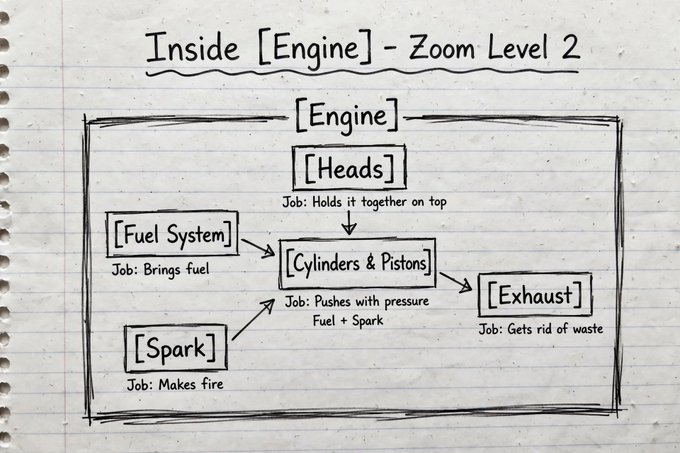 Inside [Engine] - Zoom Level 2
[Engine]
[Heads]
Job: Holds it together on top
[Fuel System]
Job: Brings fuel
[Cylinders & Pistons]
Job: Pushes with pressure
Fuel + Spark
[Exhaust]
Job: Gets rid of waste
[Spark]
Job: Makes fire